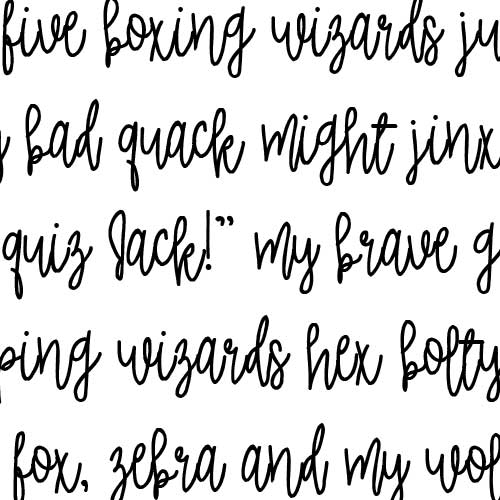 five boxing wizards ju
y bad quack might jinx
quiz Jack!” my brave g
ping wizards hex bolty
fox, zebra and my wol